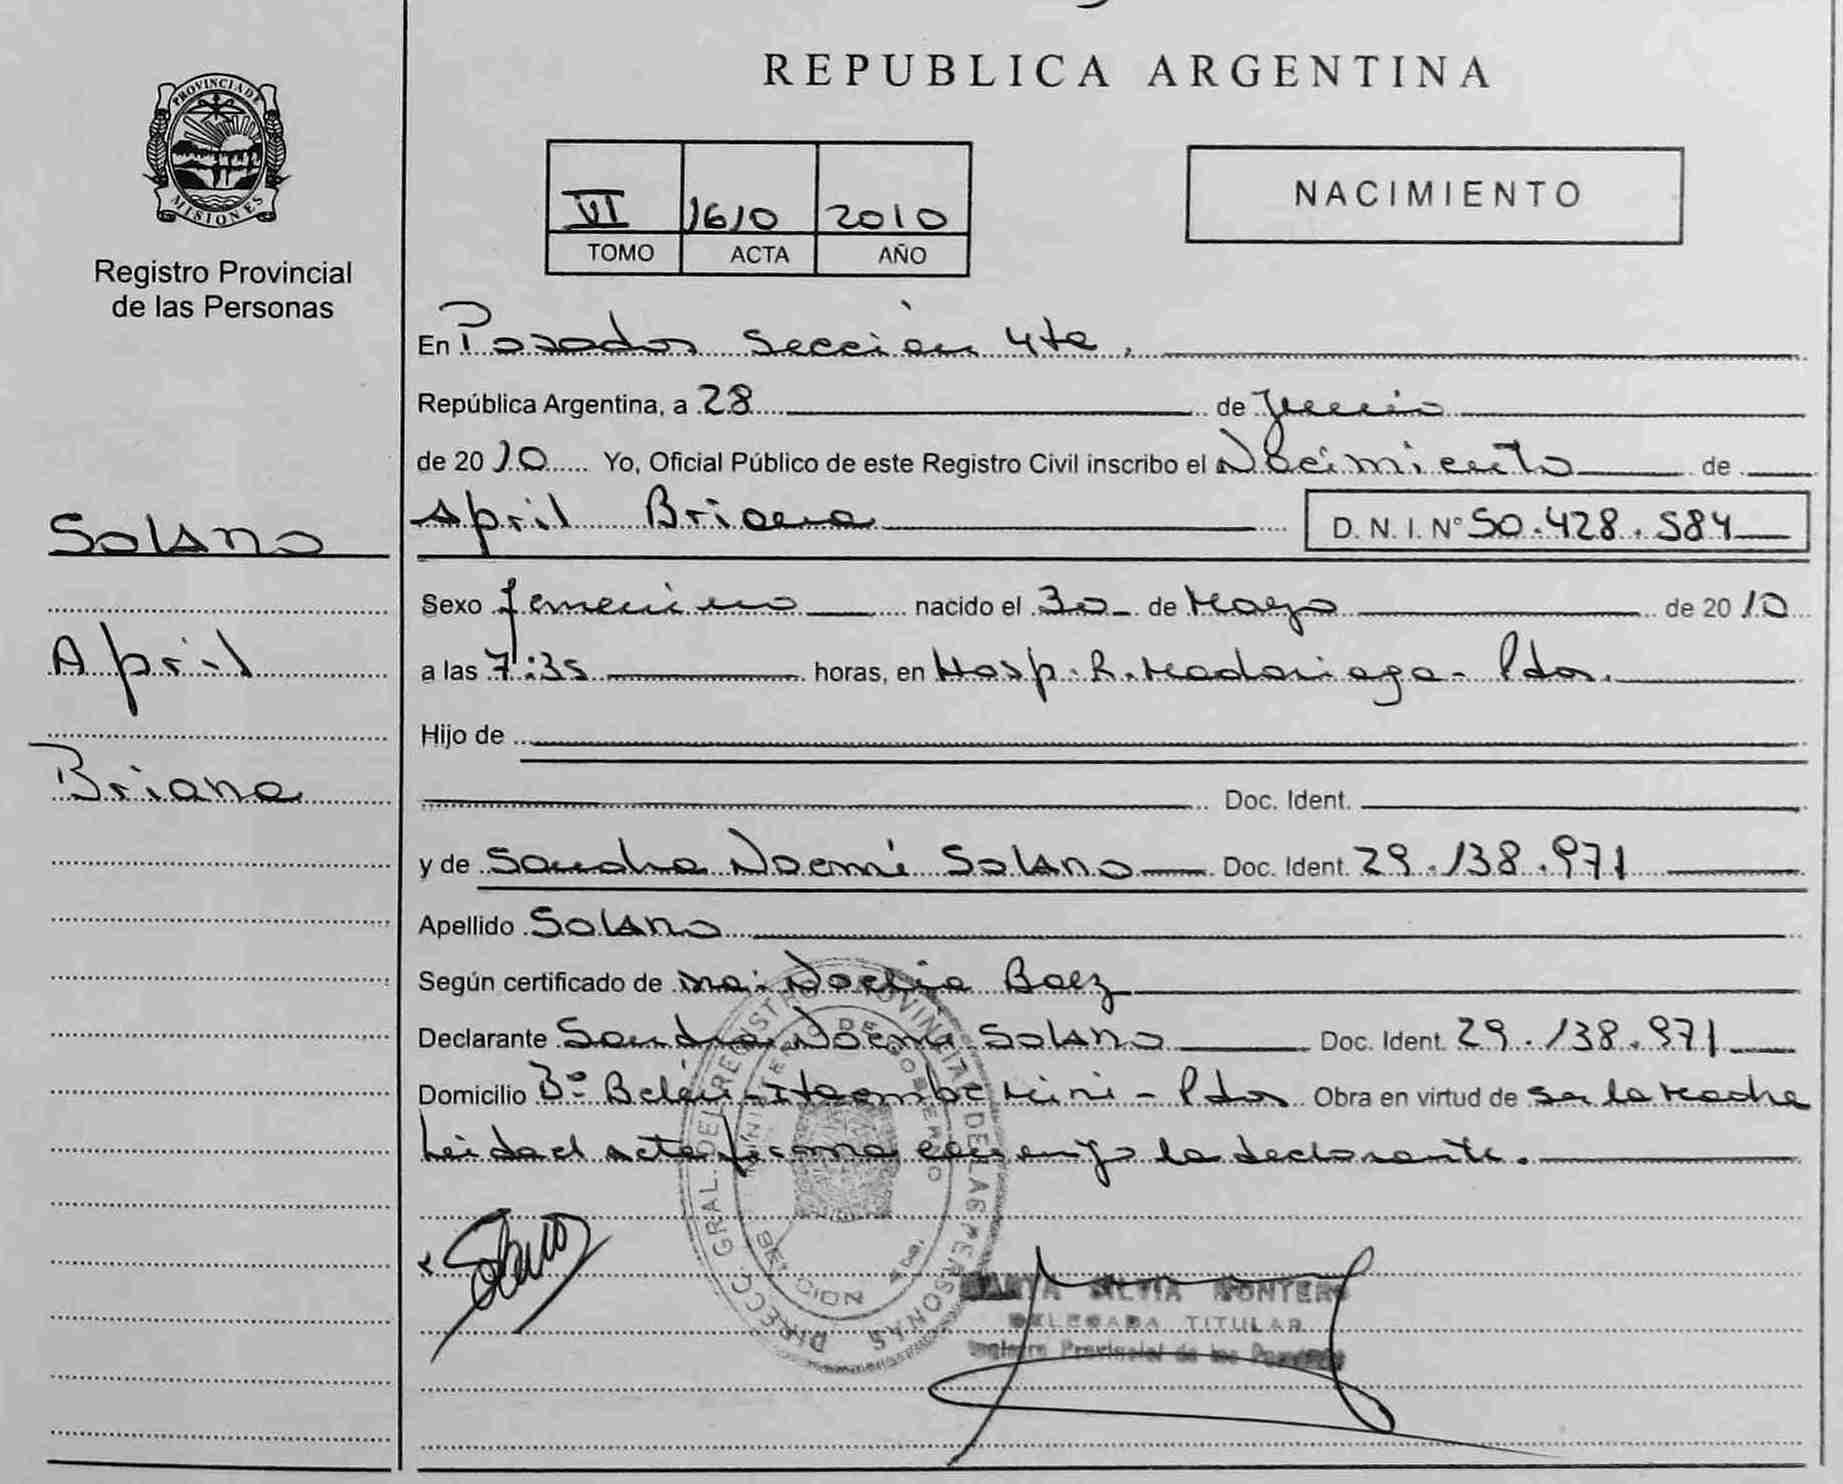 PROVINCIA DE
MISIONES
Registro Provincial
de las Personas
Solano
April
Briana
REPUBLICA ARGENTINA
VI 1610 2010
TOMO ACTA AÑO
NACIMIENTO
En Posadas Sección 4ta.
República Argentina, a 28 de Junio
de 2010 Yo, Oficial Público de este Registro Civil inscribo el Nacimiento de
April Briana D. N. I. N° 50.428.584
Sexo femenino nacido el 30 de Mayo de 2010
a las 7:35 horas, en Hosp. R. Madariaga - Pdas.
Hijo de
Doc. Ident.
y de Sandra Noemí Solano Doc. Ident. 29.138.971
Apellido Solano
Según certificado de Noelia Baez
Declarante Sandra Noemí Solano Doc. Ident. 29.138.971
Domicilio B° Belén - Itaembé Miní - Pdas Obra en virtud de ser la Madre
Leida el acta firma conmigo la declarante.
Solano
DIRECC. GRAL. DEL REGISTRO PROVINCIAL DE LAS PERSONAS
MINISTERIO DE GOBIERNO
SILVIA MONTERO
DELEGADA TITULAR
Registro Provincial de las Personas